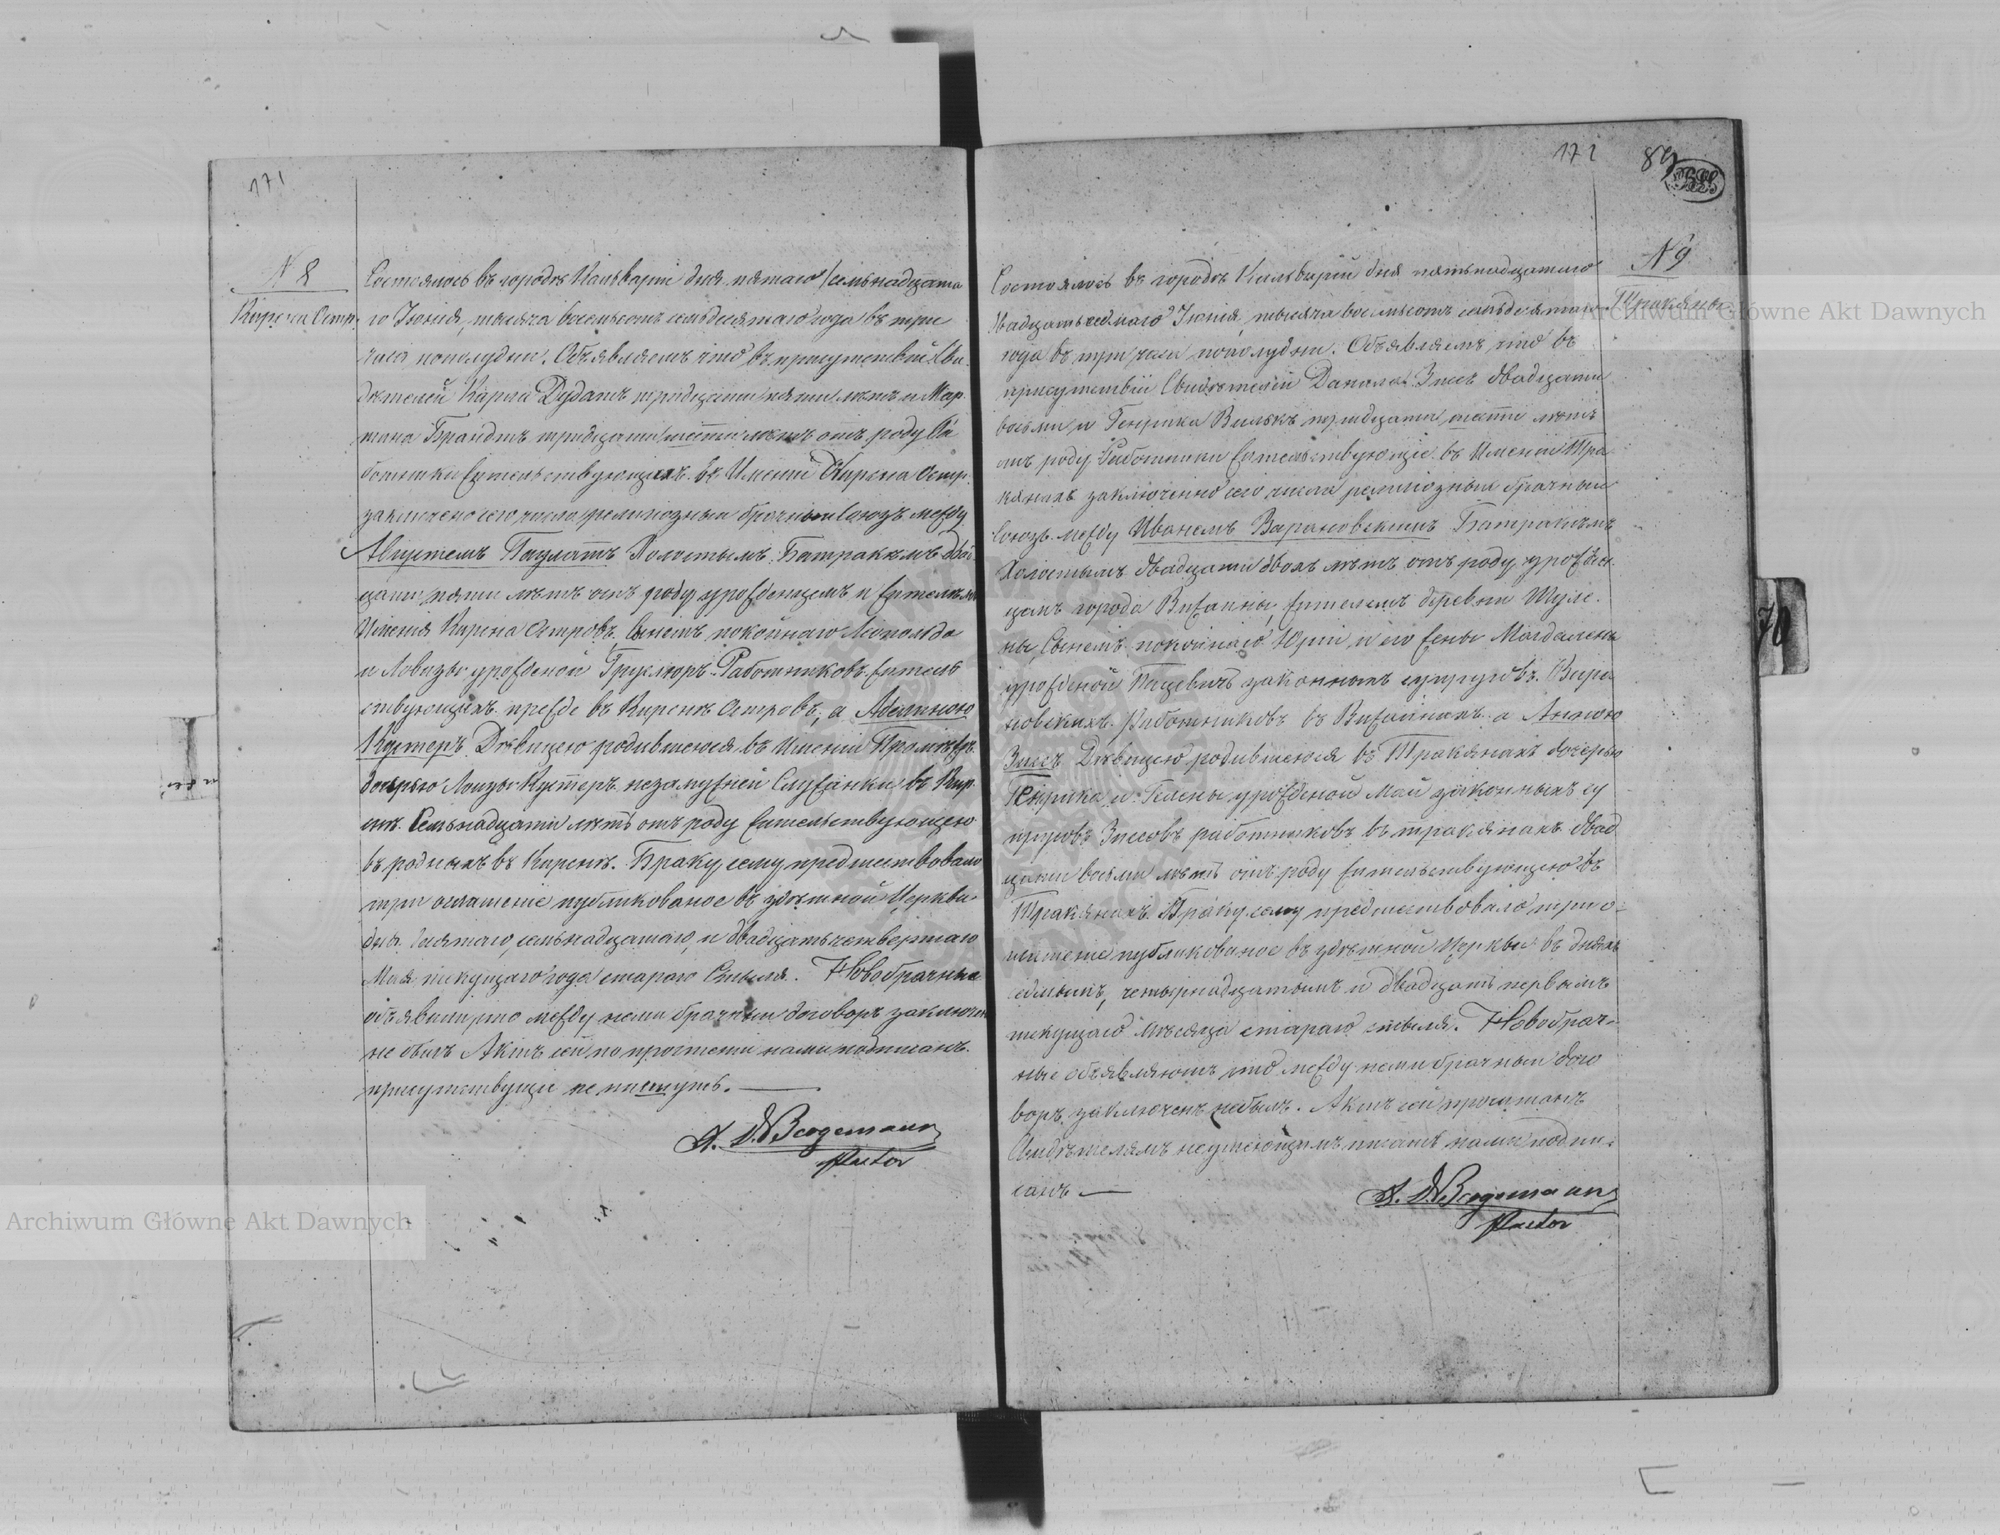 171
N 8
Кирсна Остр.
Состоялось въ городѣ Кальваріи дня пятаго /семьнадцата
го Іюня, тысяча восемьсотъ семьдесятаго года въ три
часа пополудни. Объявляемъ что въ присутствіи Сви
дѣтелей Карла Дудатъ тридцати пяти лѣтъ и Мар
тина Брандтъ тридцати шести лѣтъ отъ роду Ра
ботники жительствующихъ въ Имѣніи Кирсна Остр.
заключено сего числа религіозный брачный союзъ между
Августемъ Паулатъ Холостымъ Батракомъ двад
цати пяти лѣтъ отъ роду урожденцемъ и жителемъ
Имѣнія Кирсна Островъ, Сыномъ покойнаго Леопольда
и Ловизы урожденой Работниковъ житель
ствующихъ прежде въ Кирснѣ Островъ, а Аделиною
Кустеръ Дѣвицею родившеюся въ Имѣніи
дочерью Лоизы Кустеръ незамужней Служанки въ Кир
снѣ Семьнадцати лѣтъ отъ роду жительствующею
въ родныхъ въ Кирснѣ. Браку сему предшествовало
три оглашеніе публикованое въ здѣшной Церкви
дня десятаго, семьнадцатаго, и двадцать четвертаго
Мая текущаго года стараго Стыля. Новобрачные
объявили что между ними брачный договоръ заключен
не былъ Актъ сей по прочтеніи нами подписанъ.
присутствущіе не пишутъ. —
A. W. Bergemann
Pastor
172
89
N 9
Тракяны
Состоялось въ городѣ Кальваріи дня пятьнадцатаго
двадцать седмаго Іюнія, тысяча восемьсотъ семьдесятаго
года въ три часа пополудни. Объявляемъ что въ
присутствіи Свидѣтелей Данила Зисъ двадцати
восьми и Генрика Вилькъ тридцати шести лѣтъ
отъ роду Работники жительствующіе въ Имѣніи Тра
кянахъ заключенно сего числа религіозный брачный
Союзъ между Иваномъ Барановскимъ Батракомъ
Холостымъ двадцати двохъ лѣтъ отъ роду урожден
цемъ города Вижайны, жителемъ деревни Шуле.
ны, Сыномъ покойнаго Юрія, и его жены Магдалены
урожденой Пацевичъ законныхъ супруговъ Бара
новскихъ Работниковъ въ Вижайнахъ а Анною
Зисъ Дѣвицею родившеюся въ Тракянахъ дочерью
Генрика и Гелены урожденой Май законныхъ су
пруговъ Зисовъ работниковъ въ тракянахъ двад
цати восьми лѣтъ отъ роду жительствующею въ
Тракянахъ Браку сему предшествовало три о-
глашеніе публикованое въ здѣшной Церкви въ дняхъ
седмымъ, четырнадцатымъ и двадцать первымъ
текущаго мѣсяца стараго стыля. Новобрач-
ные объявляютъ что между ними брачный дого
воръ заключенъ небылъ. Актъ сей прочитанъ
Свидѣтелямъ неумеющимъ писать нами подпи-
санъ —
A. W. Bergemann
Pastor
70
Archiwum Główne Akt Dawnych
Archiwum Główne Akt Dawnych